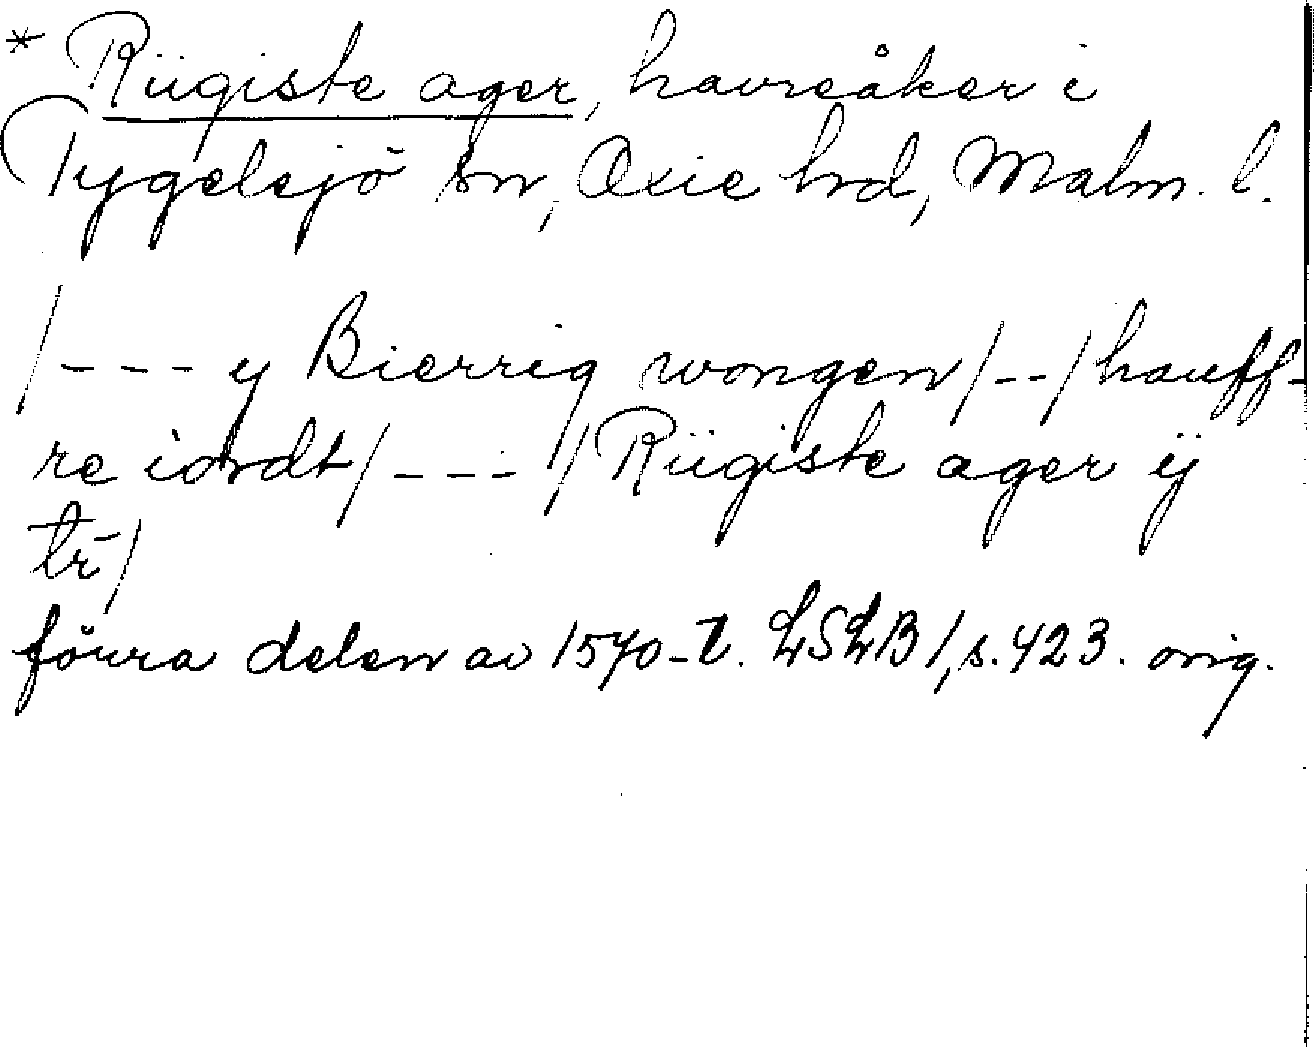 * Riigiste ager, havreåker i
Tygelsjö sn, Oxie hrd, Malm. l.
/--- y Bierrig wongen/--/hauff-
re iordt/---/Riigiste ager ij
tr/
förra delen av 1570-t. LSLB1, s. 423. orig.